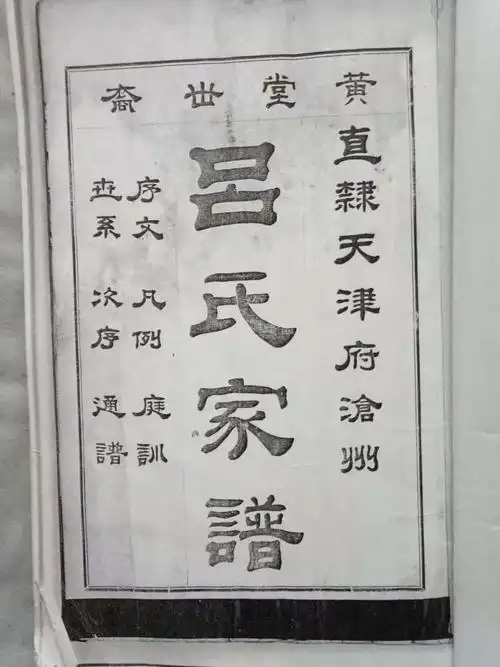 黄堂世裔
直隸天津府滄州
呂氏家譜
序文 凡例 庭訓
世系 次序 通譜